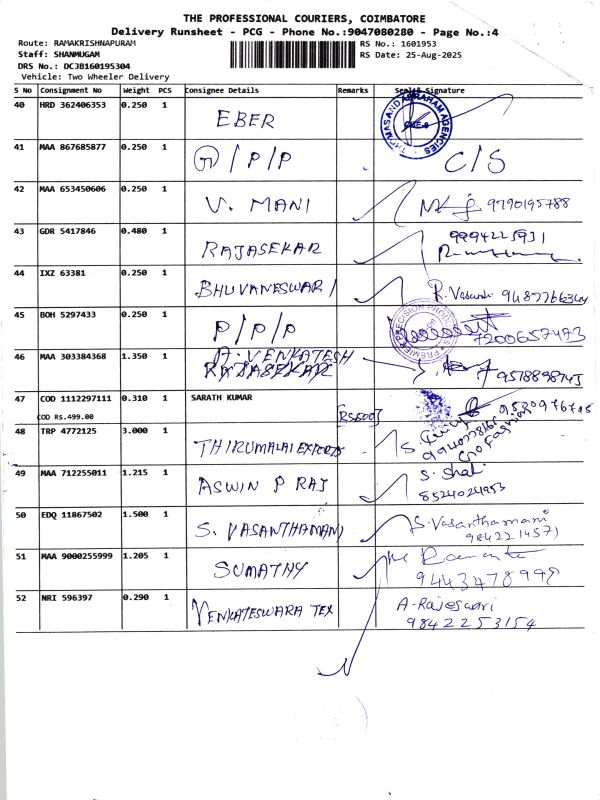 THE PROFESSIONAL COURIERS, COIMBATORE
Delivery Runsheet - PCG - Phone No.:9047080280 - Page No.:4
Route: RAMAKRISHNAPURAM
RS No.: 1601953
Staff: SHANMUGAM
RS Date: 25-Aug-2025
DRS No.: DCJB160195304
Vehicle: Two Wheeler Delivery
S No Consignment No Weight PCS Consignee Details Remarks Seal & Signature
40 HRD 362406353 0.250 1 EBER THOMAS AND ABRAHAM AGENCIES
41 MAA 867685877 0.250 1 P/P C/S
42 MAA 653450606 0.250 1 V. MANI 9790195788
43 GDR 5417846 0.480 1 RAJASEKAR 9994225931
44 IXZ 63381 0.250 1 BHUVANESWARI R. Vasanth 9487766344
45 BOH 5297433 0.250 1 P/P/P PREMIER PRECISION 7200657473
46 MAA 303384368 1.350 1 A. VENKATESH RAJASEKAR
47 COD 1112297111 0.310 1 SARATH KUMAR
COD RS.499.00
48 TRP 4772125 3.000 1 THIRUMALAI EXPORTS S. Fashion
49 MAA 712255011 1.215 1 ASWIN P RAJ S. Shal 8524024953
50 EDQ 11867502 1.500 1 S. VASANTHAMANI S. Vasanthamani
9842214571
51 MAA 9000255999 1.205 1 SUMATHY
52 NRI 596397 0.290 1 VENKATESWARA TEX A-Rajeswari
9842253154